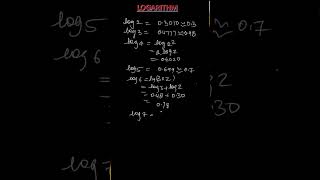 LOGARITHM
log 2 = 0.3010 ≈ 0.3
log 3 = 0.4777 ≈ 0.48
log 4 = log 2²
= 2 log 2
= 0.6020
log 5 = 0.699 ≈ 0.7
log 6 = log(3×2)
= log 3 + log 2
= 0.48 + 0.30
= 0.78
log 7 =
log 5
log 6
≈ 0.7